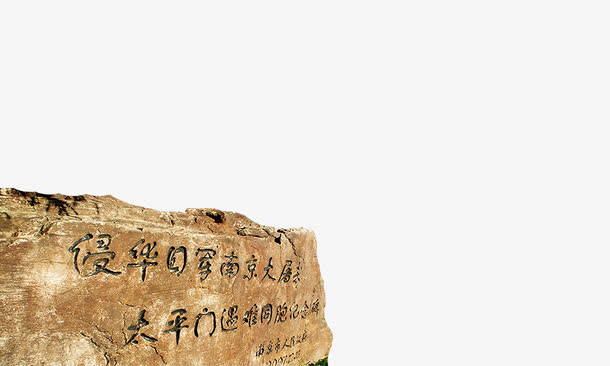 侵华日军南京大屠杀
太平门遇难同胞纪念碑
南京市人民政府